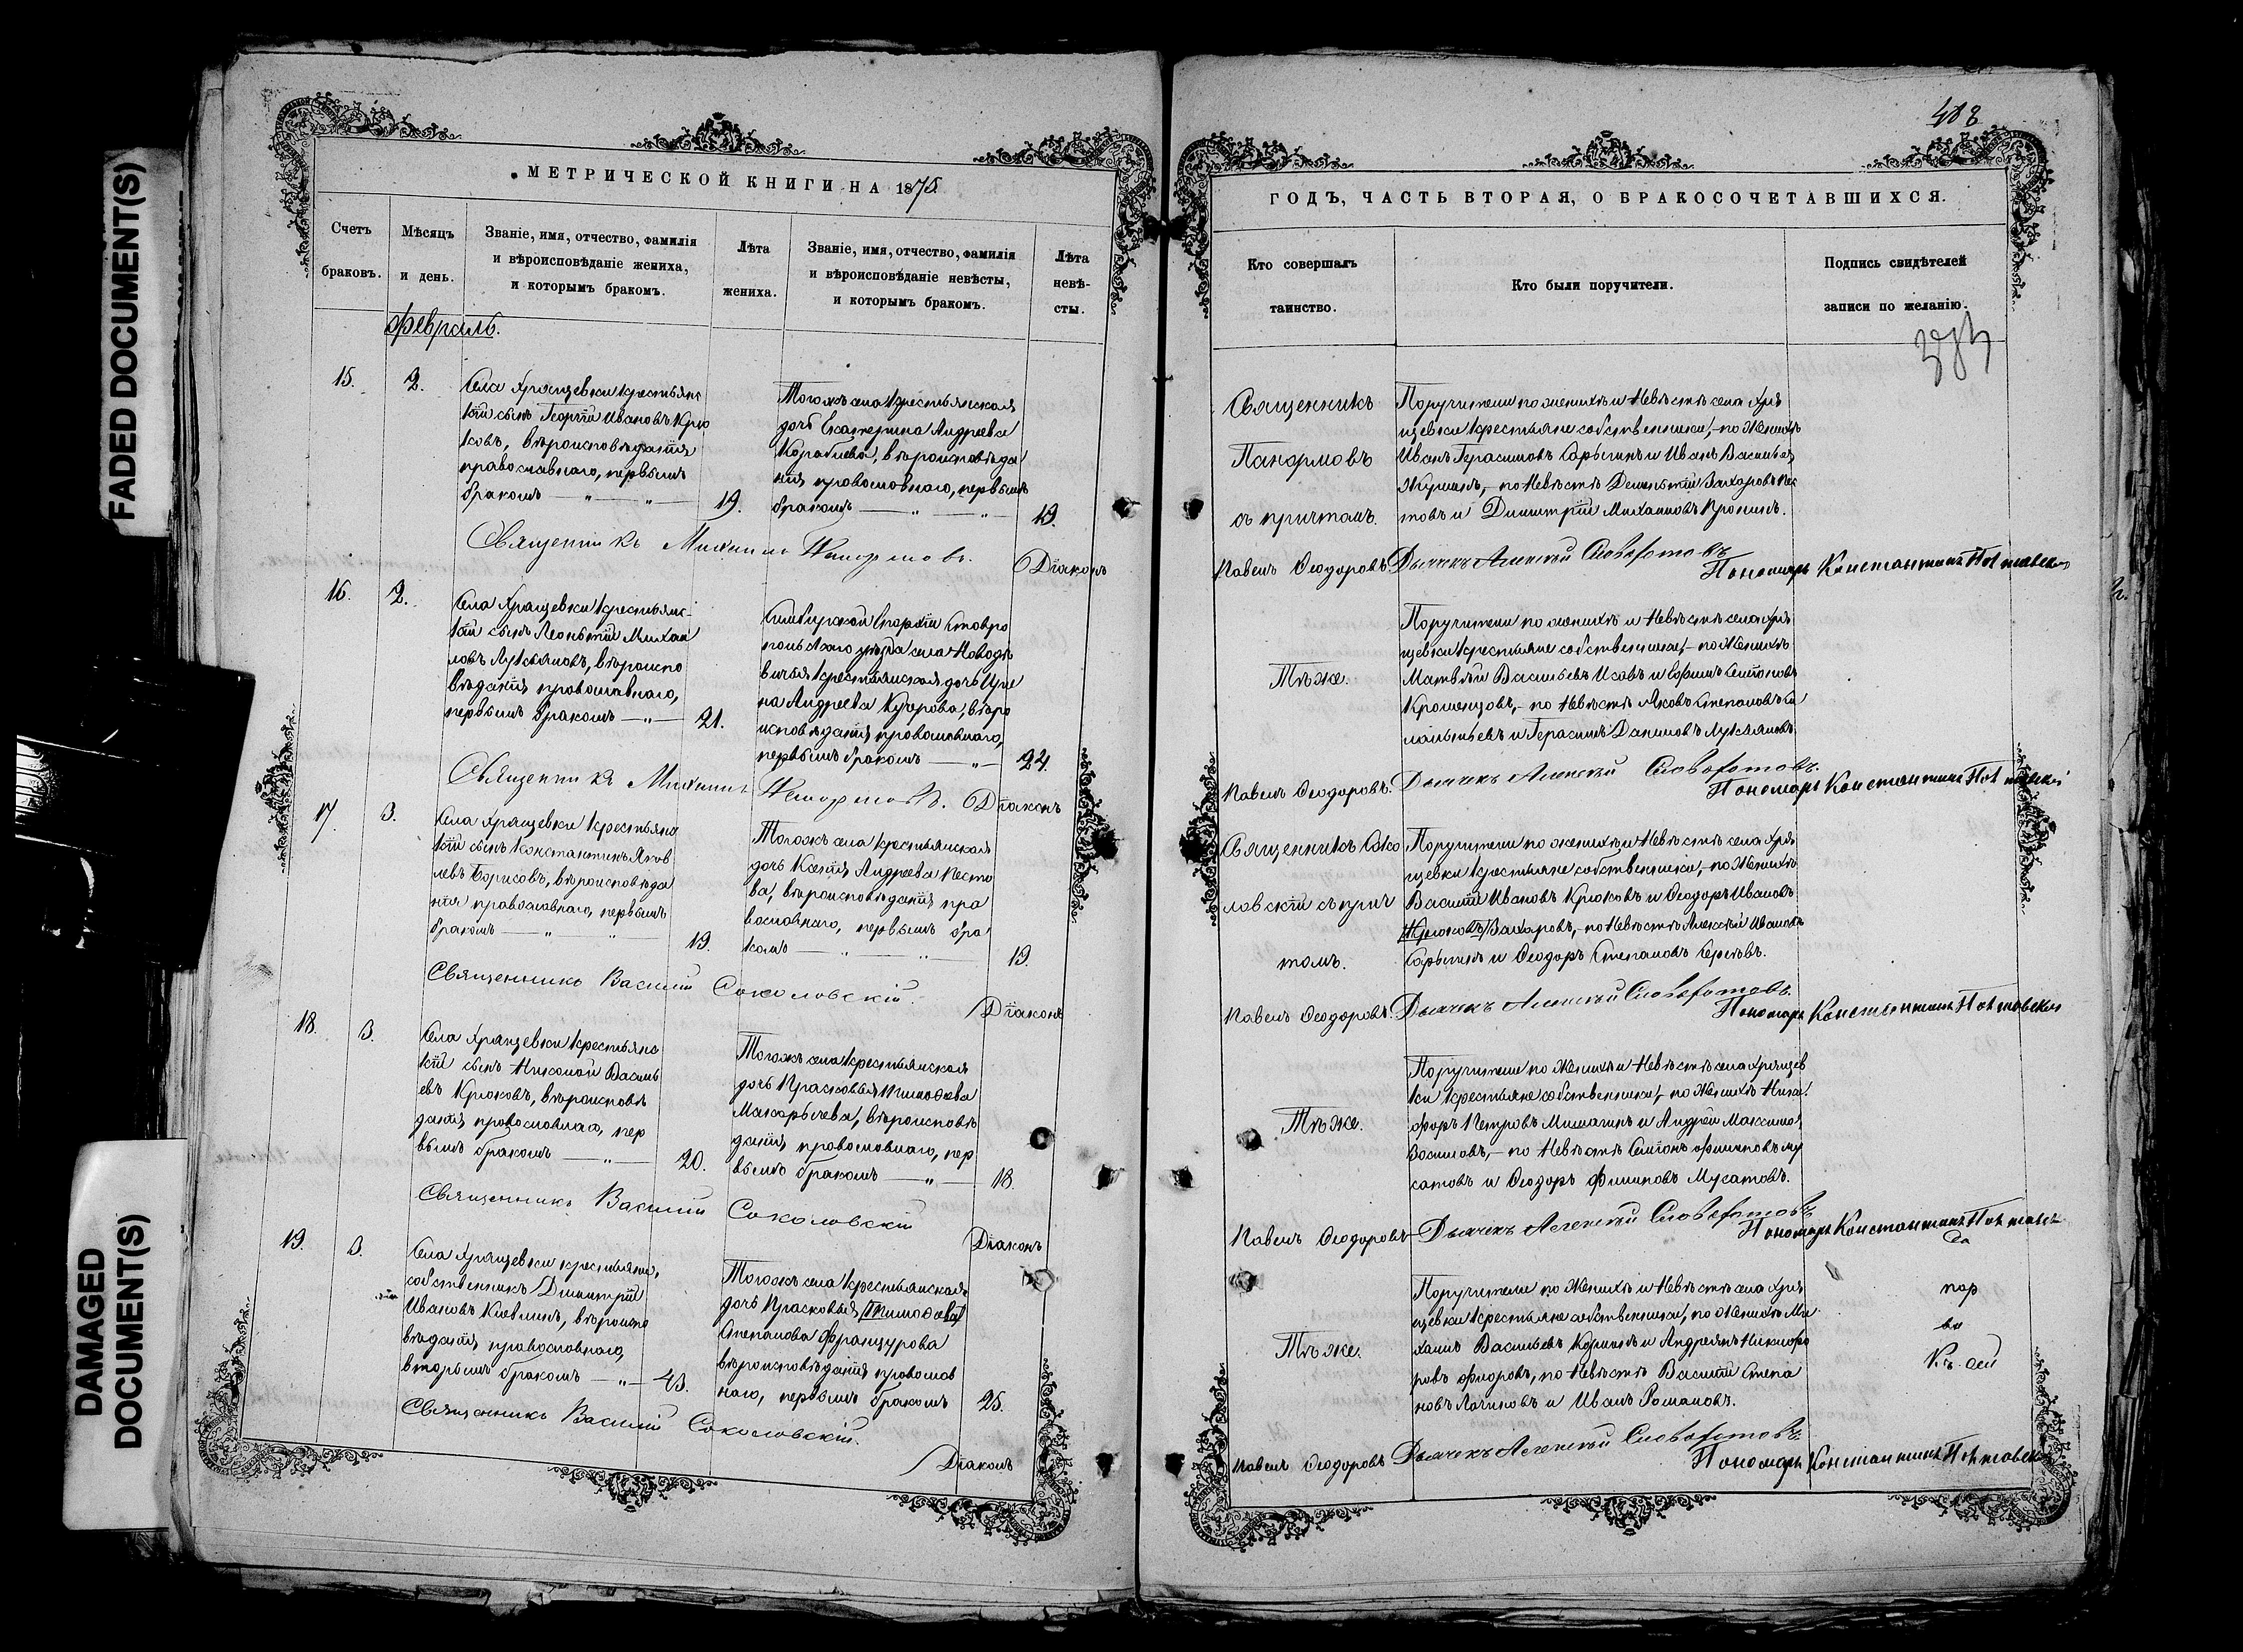 FADED DOCUMENT(S)
DAMAGED
DOCUMENT(S)
МЕТРИЧЕСКОЙ КНИГИ НА 1875
Счетъ
браковъ.
Мѣсяцъ
и день.
Званіе, имя, отчество, фамилія
и вѣроисповѣданіе жениха,
и которымъ бракомъ.
Лѣта
жениха.
Званіе, имя, отчество, фамилія
и вѣроисповѣданіе невѣсты,
и которымъ бракомъ.
Лѣта
невѣ-
сты.
Февраль.
15.
2.
Села Хрящевки крестьянс
кій сынъ Георгій Ивановъ Крю
ковъ, вѣроисповѣданія
православнаго, первымъ
бракомъ — „ — „ —
19.
Тогожъ села крестьянская
дочь Екатерина Андреева
вѣроисповѣда
нія православнаго, первымъ
бракомъ — „ — „ —
19.
Священникъ Михаилъ Панормовъ.
Діаконъ
16.
2.
Села Хрящевки крестьянс-
кій сынъ Леонтій Михаи
ловъ Лукьяновъ, вѣроиспо
вѣданія православнаго,
первымъ бракомъ — „ —
21.
Симбирской Губерніи Ставро
польскаго уѣзда села Новодѣ
вичья крестьянская дочь Ири
на Андреева Кучерова, вѣро
исповѣданія православнаго,
первымъ бракомъ — „ —
24.
Священникъ Михаилъ Панормовъ.
Діаконъ
17.
3.
Села Хрящевки крестьянс
кій сынъ Константинъ Яков
левъ Борисовъ, вѣроисповѣда
нія православнаго, первымъ
бракомъ — „ — „ —
19.
Тогожъ села крестьянская
дочь Ксенія Андреева Песто
ва, вѣроисповѣданія пра
вославнаго, первымъ бра
комъ — „ — „ —
19.
Священникъ Василій Соколовскій.
Діаконъ
18.
3.
Села Хрящевки крестьянс
кій сынъ Николай Василь
евъ Крюковъ, вѣроисповѣ
данія православнаго, пер
вымъ бракомъ — „ —
20.
Тогожъ села крестьянская
дочь Прасковья Тимофеева
Макарычева, вѣроисповѣ
данія православнаго, пер
вымъ бракомъ — „ —
18.
Священникъ Василій Соколовскій
Діаконъ
19.
3.
Села Хрящевки крестьянинъ,
собственникъ Димитрій
Ивановъ Киевлинъ, вѣроиспо
вѣданія православнаго,
вторымъ бракомъ — „ —
43.
Тогожъ села крестьянская
дочь Прасковья Тимофеева
Степанова Францурова
вѣроисповѣданія православ
наго, первымъ бракомъ
25.
Священникъ Василій Соколовскій.
Діаконъ
ГОДЪ, ЧАСТЬ ВТОРАЯ, О БРАКОСОЧЕТАВШИХСЯ.
Кто совершалъ
таинство.
Кто были поручители.
Подпись свидѣтелей
записи по желанію.
Священникъ
Панормовъ
съ причтомъ.
Поручители по женихѣ и невѣстѣ села Хря
щевки крестьяне собственники, по Женихѣ
Иванъ Герасимовъ Сарычинъ и Иванъ Васильевъ
по Невѣстѣ Дементій Захаровъ Пес
товъ и Димитрій Михаиловъ Пронинъ.
Павелъ Ѳеодоровъ. Дьячекъ Алексѣй Словохотовъ
Пономарь Константинъ
Тѣ же.
Поручители по женихѣ и Невѣстѣ села Хря
щевки крестьяне собственники, по Женихѣ
Матвѣй Васильевъ Исовъ и Ефимъ Семеновъ
по Невѣстѣ Яковъ Степановъ
и Герасимъ Даниловъ Лукьяновъ
Павелъ Ѳеодоровъ. Дьячекъ Алексѣй Словохотовъ.
Пономарь Константинъ
Священникъ Соко
ловскій съ прич
томъ.
Поручители по женихѣ и Невѣстѣ села Хря
щевки крестьяне собственники, по Женихѣ
Василій Ивановъ Крюковъ и Ѳеодоръ Ивановъ
Крюковъ Захаровъ, по Невѣстѣ Алексѣй Ивановъ
Сарычинъ и Ѳеодоръ Степановъ
Павелъ Ѳеодоровъ. Дьячекъ Алексѣй Словохотовъ.
Пономарь Константинъ
Тѣ же.
Поручители по Женихѣ и Невѣстѣ села Хрящев
ки крестьяне собственники, по Женихѣ Ники
форъ Петровъ Мишагинъ и Андрей Максимов
по Невѣстѣ Семенъ Филиповъ Му
сатовъ и Ѳеодоръ Филиповъ Мусатовъ.
Павелъ Ѳеодоровъ Дьячекъ Алексѣй Словохотовъ
Пономарь Константинъ
Тѣ же.
Поручители по Женихѣ и Невѣстѣ села Хря
щевки крестьяне собственники, по Женихѣ Ми
хаилъ Васильевъ и Андреянъ Никифо
ровъ по Невѣстѣ Василій Степа
новъ и Иванъ Романовъ.
Павелъ Ѳеодоровъ Дьячекъ Алексѣй Словохотовъ
Пономарь Константинъ